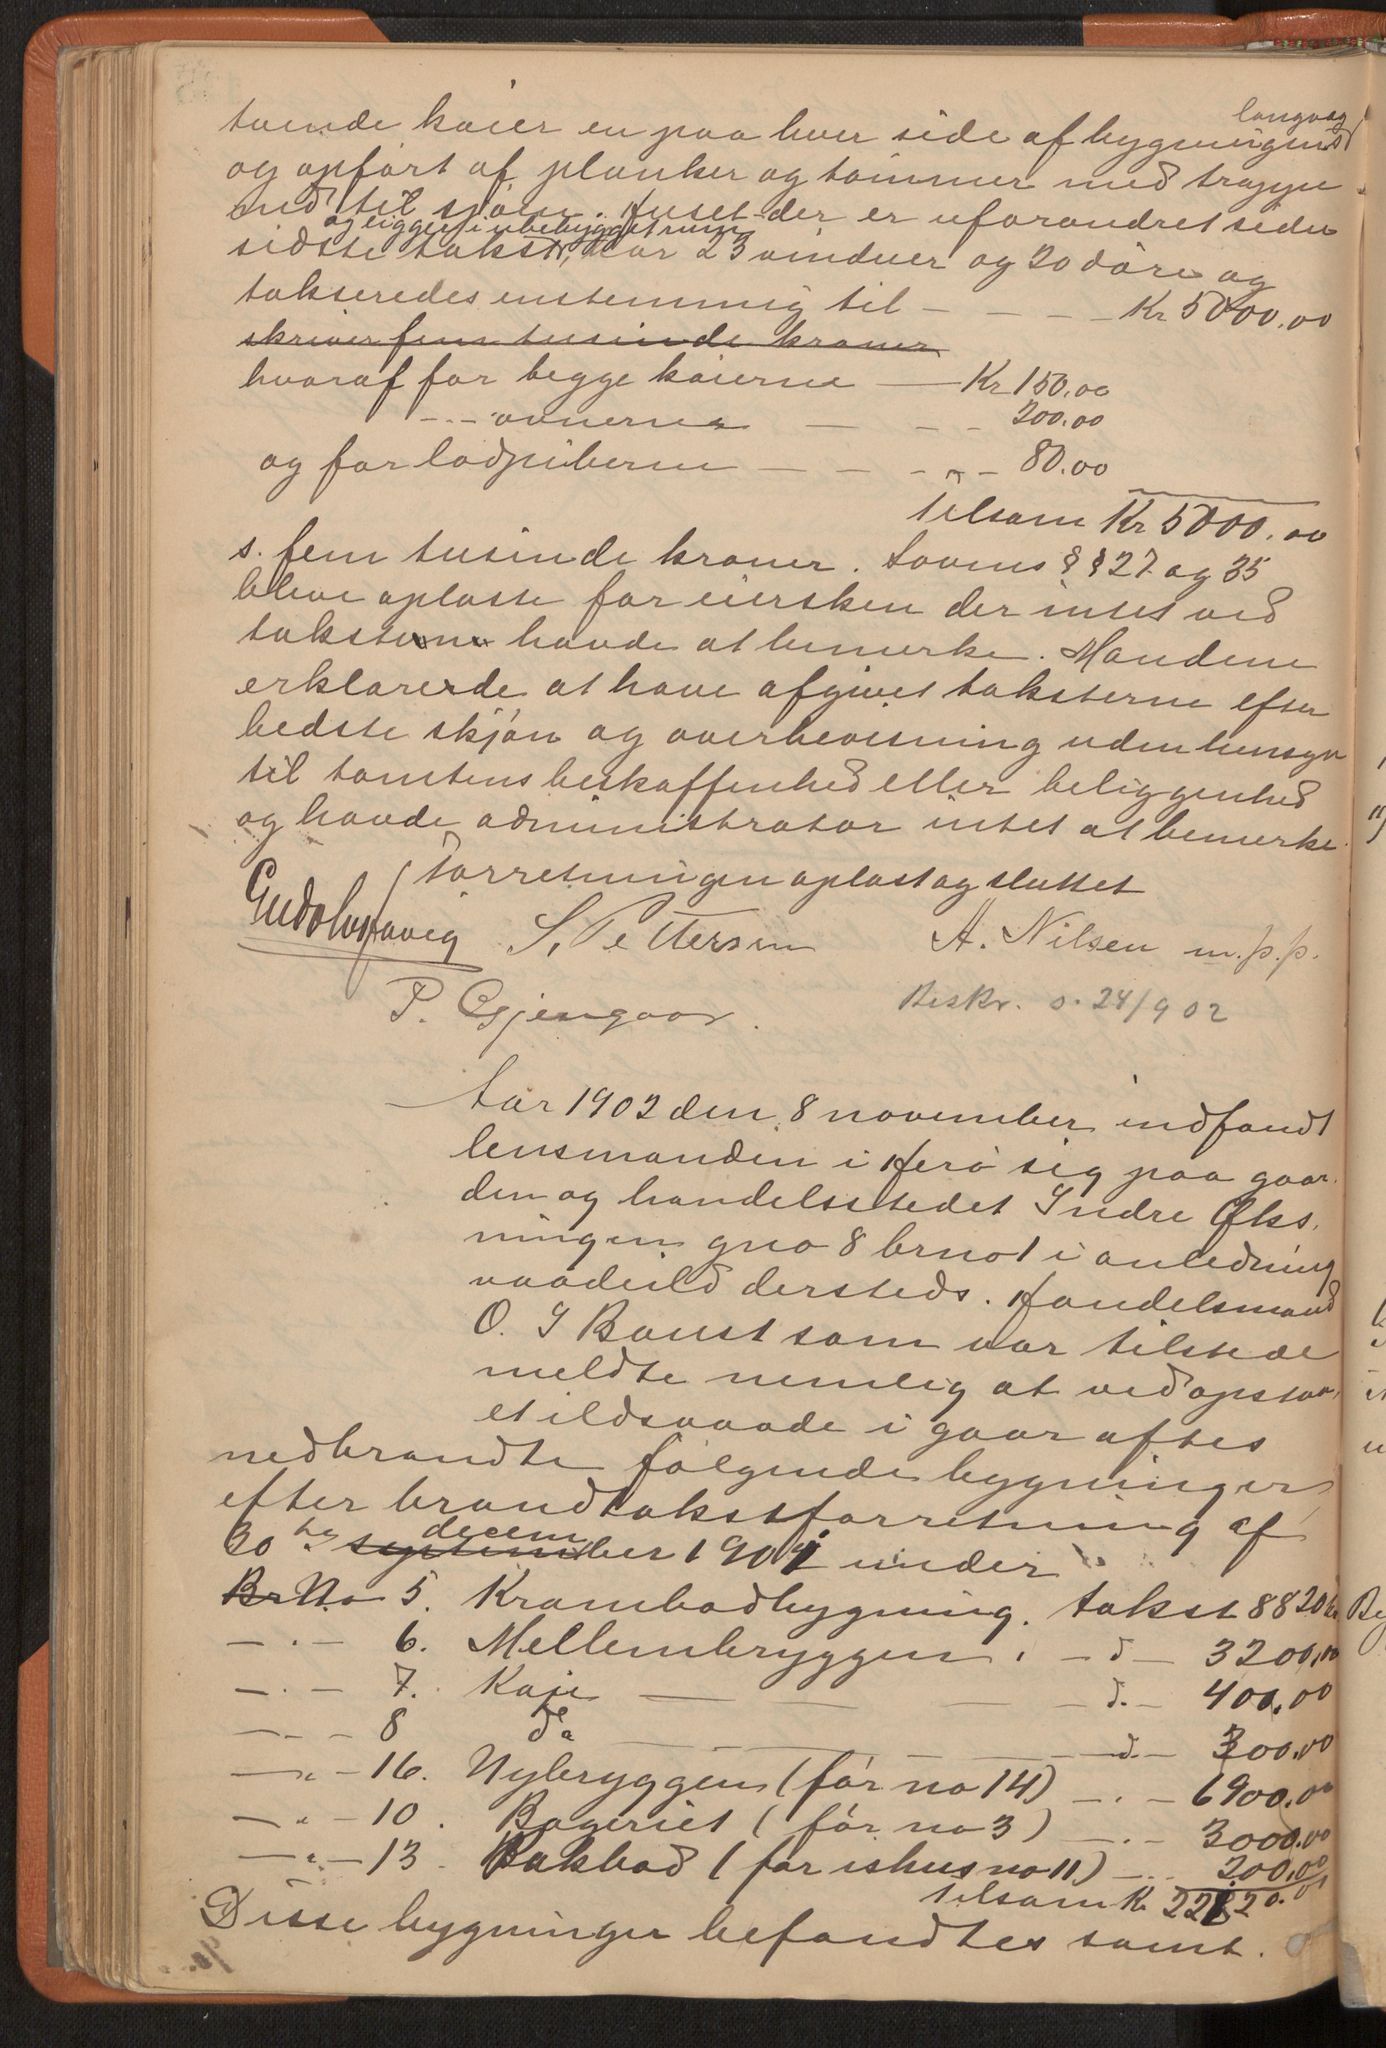 tvende kaier en paa hver side af bygningens langvæg
og opført af planker og tømmer med trappe
ned til sjøen. Huset der er uforandret siden
sidste takst, og ligger i ubebygget rum har 23 vinduer og 20 døre og
takseredes enstemmig til — — — — Kr 5000.00
skriver fem tusinde kroner
hvoraf for begge kaierne — Kr 150.00
—"— ovnerne — — — 200.00
og for lodpiberne — — — " — 80.00
tilsam Kr 5000.00
s. fem tusinde kroner. Lovens §§ 27 og 35
bleve oplæste for eiersken der intet ved
taksten havde at bemerke. Mændene
erklærede at have afgivet taksterne efter
bedste skjøn og overbevisning uden hensyn
til tomtens beskaffenhed eller beliggenhed
og havde administrator intet at bemerke.
Forretningen oplæst og sluttet
S. Pettersen A. Nilsen m.p.p.
P. Gjengaar. Beskr. s. 24/9 02
Aar 1902 den 8 november indfandt
lensmanden i Herø sig paa gaar-
den og handelsstedet Indre Øks-
ningen gno 8 brno 1 i anledning
vaadeild dersteds. Handelsmand
O. J Baust som var tilstede
meldte nemlig at ved opstaa-
et ildsvaade i gaar aftes
nedbrandte følgende bygninger
efter brandtakstforretning af
30te septem decem ber 1901 under
Br No 5. Krambodbygning. takst 8820 kr
— . — 6. Mellembryggen. — d — 3200,00
— . — 7. Kaje — — — d. — 400.00
— . — 8 do — — — d. — 300.00
— " — 16. Nybryggen (før no 14) — . — 6900.00
— " — 10. Bageriet (før no 3) — . — 3000.00
— " — 13. Bakbod (før ishus no 11) — . . 200.00
tilsam Kr 22820.00
Disse bygninger befandtes samt.